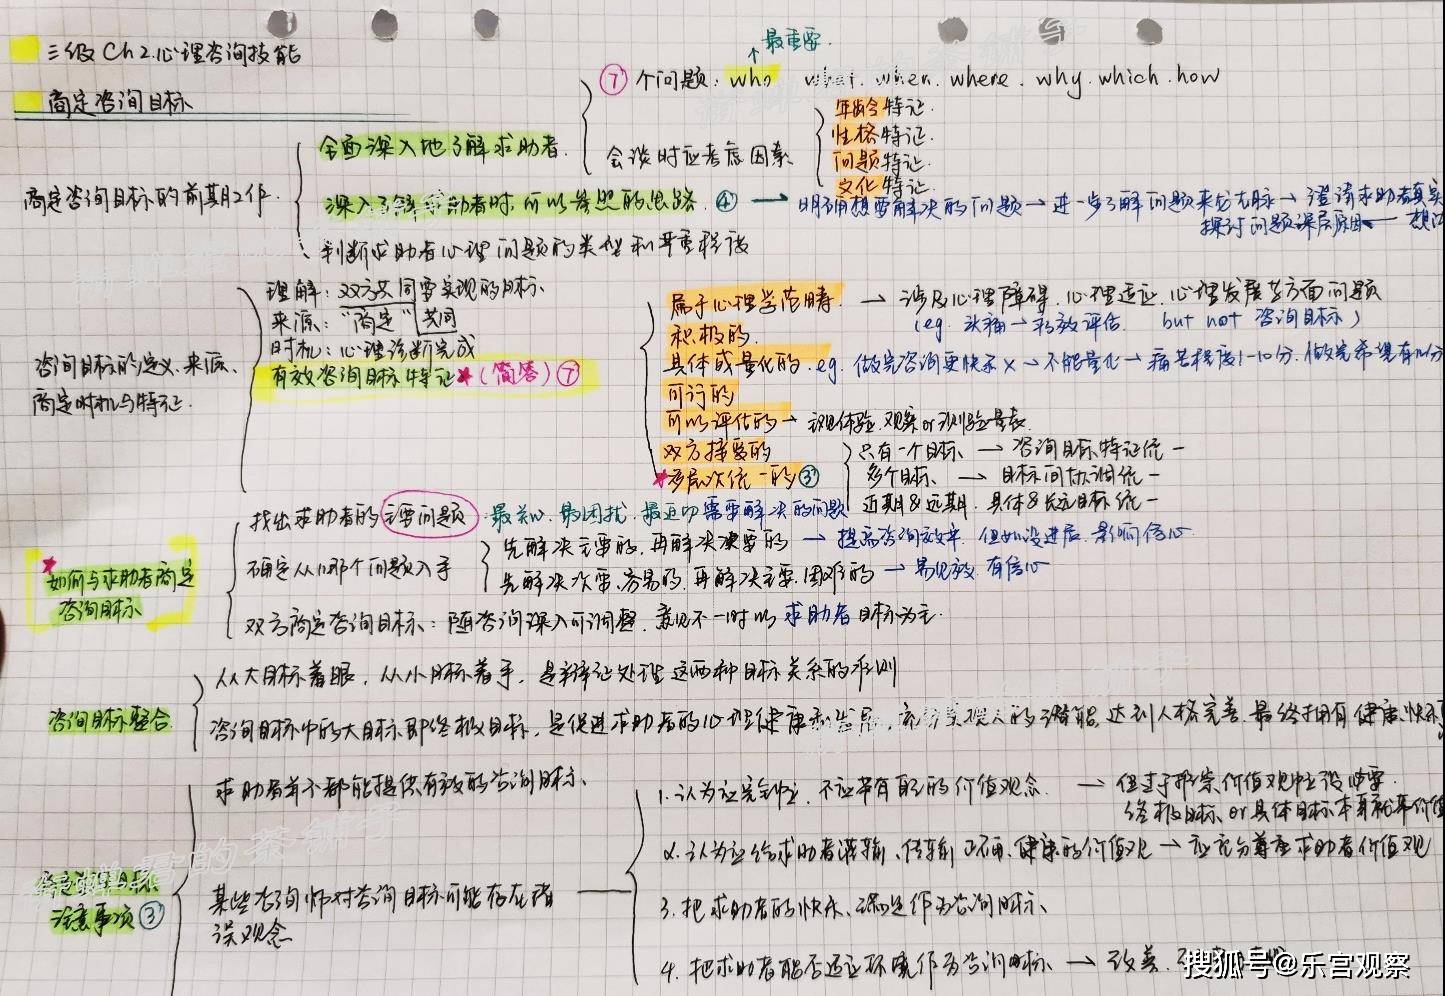 三级Ch2.心理咨询技能
商定咨询目标
商定咨询目标的前期工作.
全面深入地了解求助者.
⑦个问题: who what.when.where.why.which.how
最重要.
会谈时应考虑因素
年龄特征.
性格特征.
问题特征.
文化特征.
深入了解求助者时.可以参照的思路.④
明确想要解决的问题→进一步了解问题来龙去脉→澄清求助者真实
探讨问题深层原因←想法
判断求助者心理问题的类型和严重程度
咨询目标的定义.来源.
商定时机与特征.
理解:双方共同要实现的目标.
来源:"商定"共同
时机:心理诊断完成
有效咨询目标特征★(简答)⑦
属于心理学范畴.→涉及心理障碍.心理适应.心理发展等方面问题
(eg.头痛→疗效评估. but not 咨询目标)
积极的.
具体或量化的.eg.做完咨询要快乐×→不能量化→痛苦程度1-10分.
可行的
可以评估的→主观体验.观察or测验量表.
双方接受的
★多层次统一的③
只有一个目标→咨询目标特征统一
多个目标.→目标间协调统一
近期&远期.具体&长远目标统一
★如何与求助者商定
咨询目标
找出求助者的主要问题.最关心.最困扰.最迫切需要解决的问题
确定从哪个问题入手
先解决主要的.再解决次要的→提高咨询效率.但如没进展.影响信心
先解决次要、容易的.再解决主要.困难的→易见效.有信心
双方商定咨询目标:随咨询深入可调整.意见不一时以求助者目标为主.
咨询目标整合
从大目标着眼,从小目标着手,是辩证处理这两种目标关系的准则
咨询目标中的大目标即终极目标,是促进求助者的心理健康和发展,充分实现人的潜能.达到人格完善.最终拥有健康.快乐
注意事项③
求助者并不都能提供有效的咨询目标.
某些咨询师对咨询目标可能存在错
误观念
1.认为应完全中立.不应带有自己的价值观念.→但过于形崇价值观中立没必要.
终极目标.or具体目标本身就带价值
2.认为应给求助者灌输、传输正确、健康的价值观→应充分尊重求助者价值观
3.把求助者的快乐、满足作为咨询目标.
4.把求助者能否适应环境作为咨询目标.→改善.
搜狐号@乐宫观察